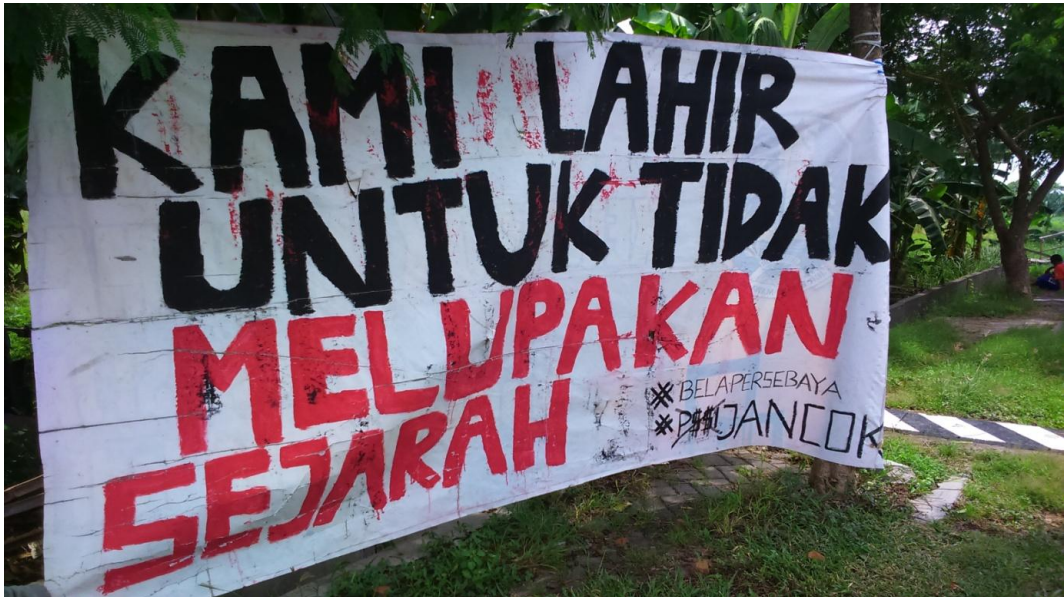 KAMI LAHIR
UNTUK TIDAK
MELUPAKAN
SEJARAH
#BELAPERSEBAYA
#P$$IJANCOK